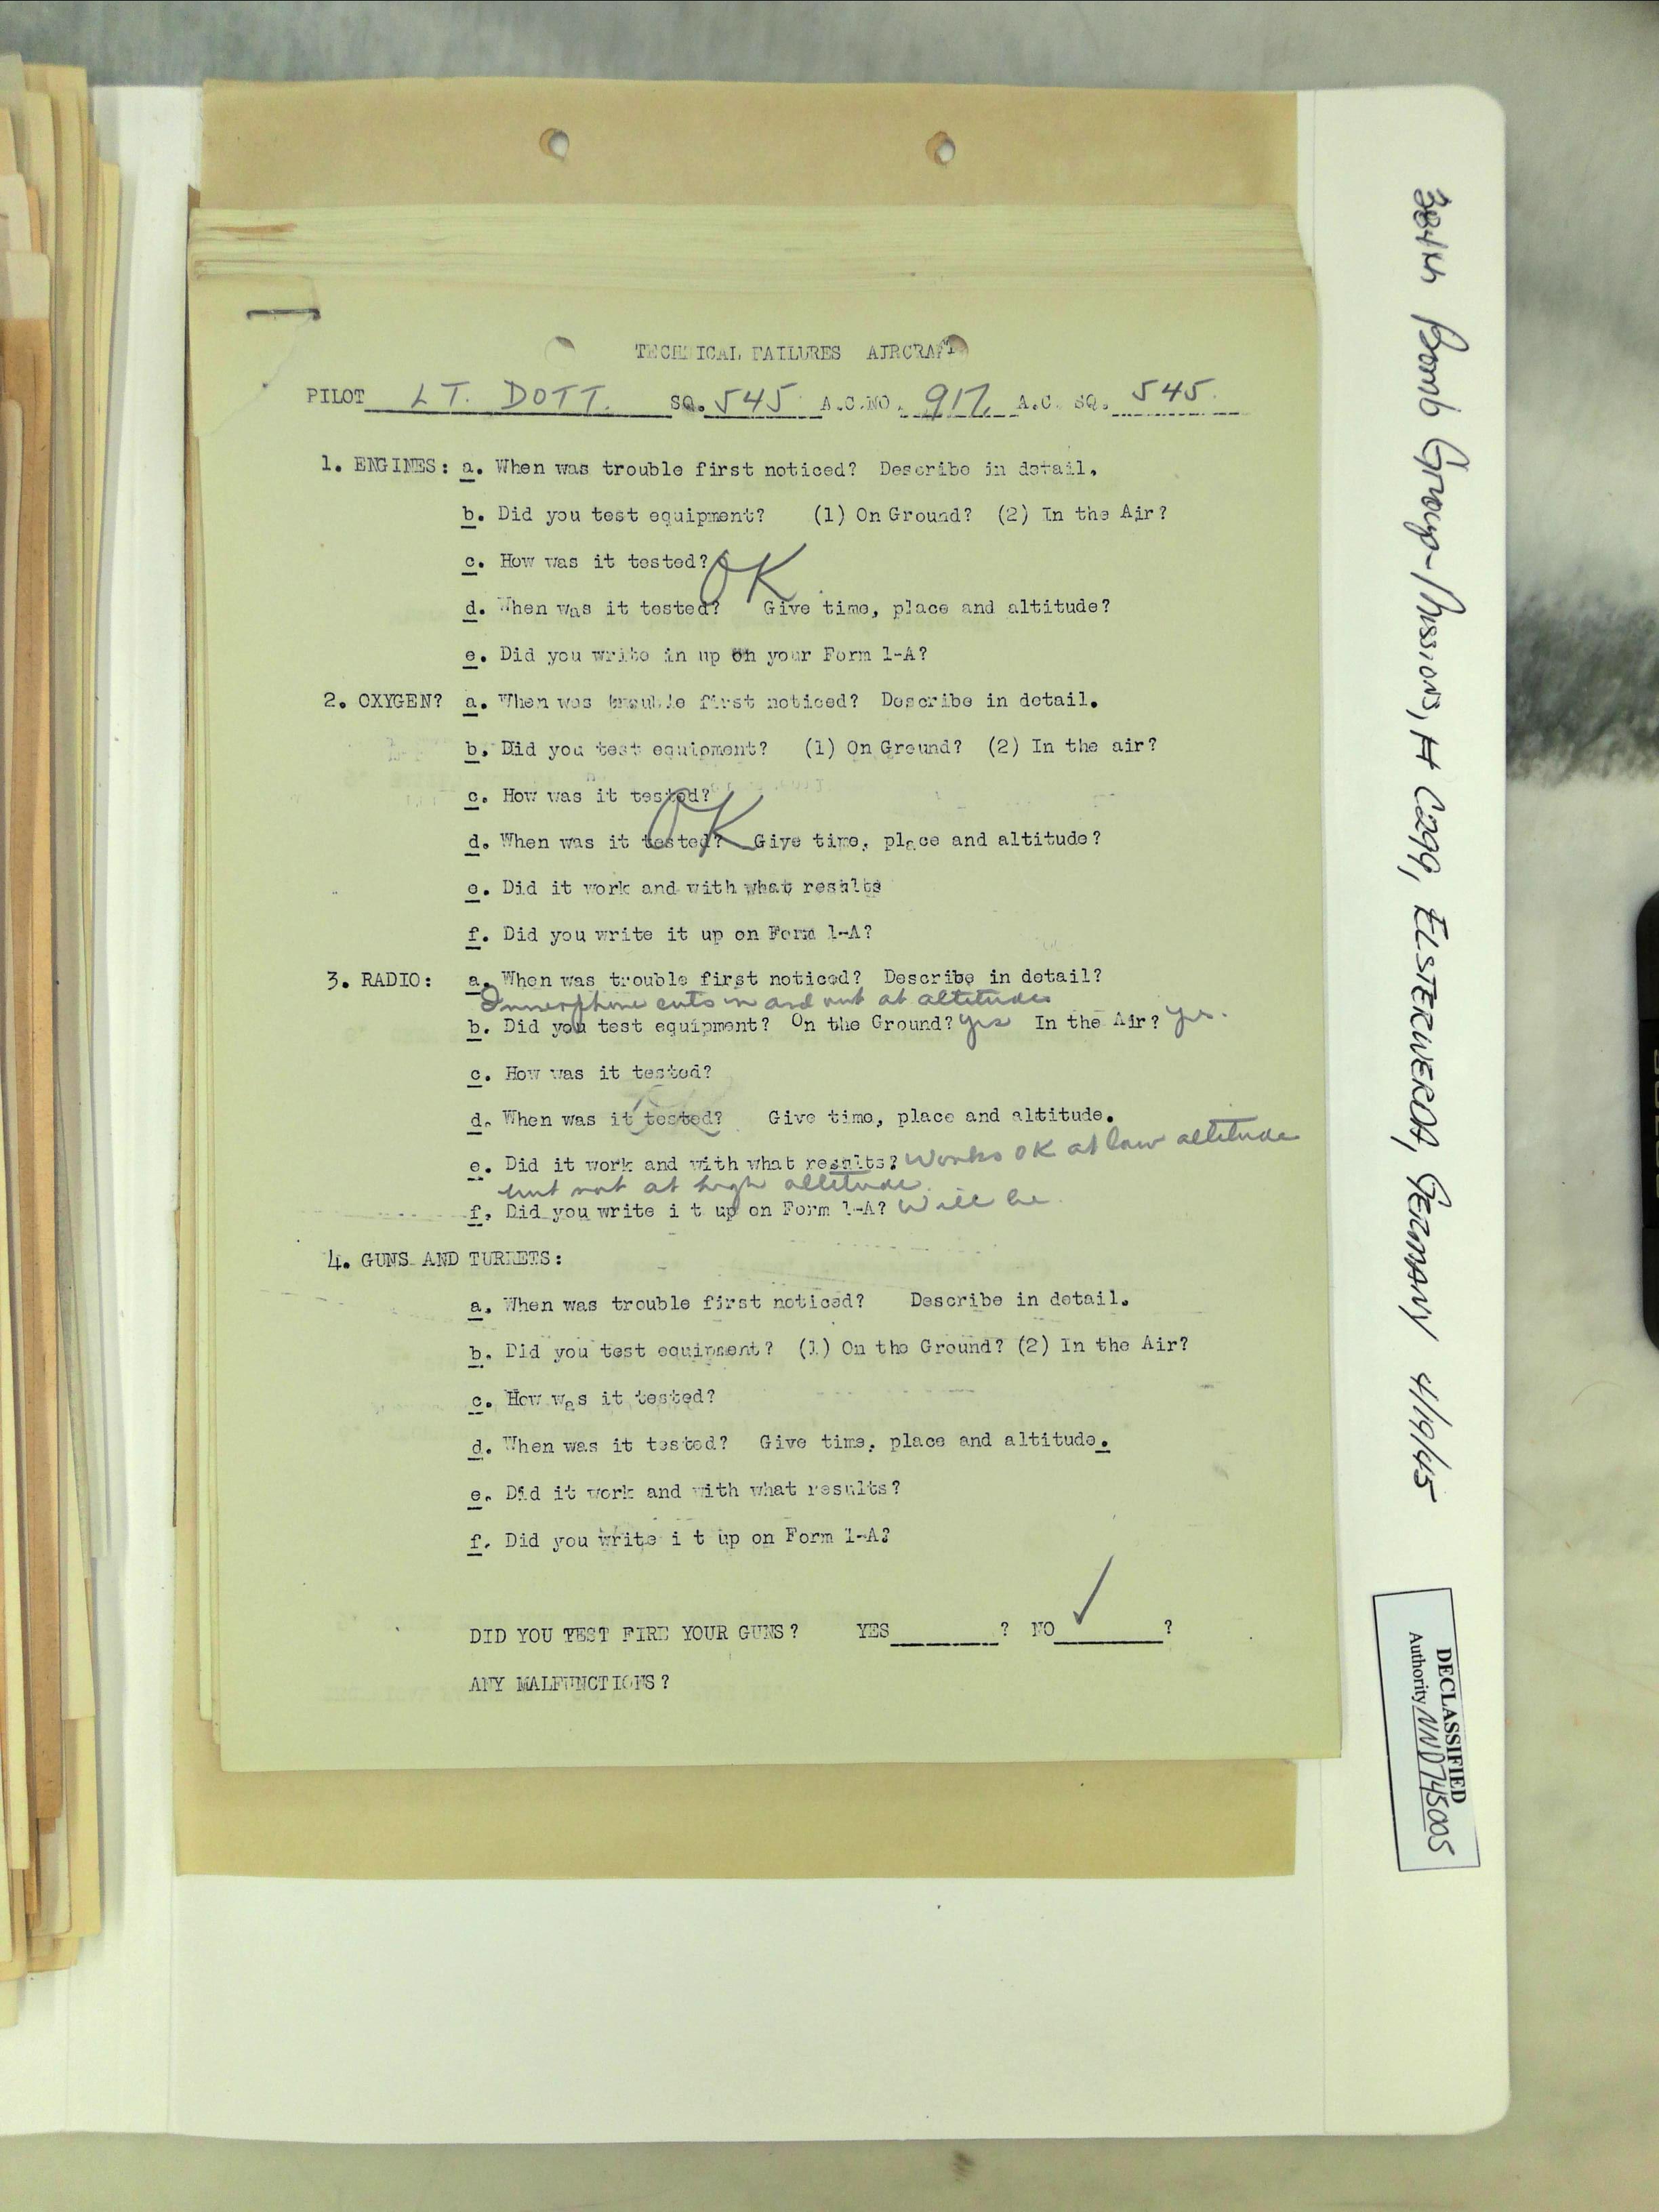 TECHNICAL FAILURES AIRCRAFT
PILOT LT. DOTT. SQ. 545 A.C.NO. 917. A.C. SQ. 545.
1. ENGINES: a. When was trouble first noticed? Describe in detail.
b. Did you test equipment? (1) On Ground? (2) In the Air?
c. How was it tested?
OK
d. When was it tested? Give time, place and altitude?
e. Did you write in up on your Form 1-A?
2. OXYGEN? a. When was trouble first noticed? Describe in detail.
b. Did you test equipment? (1) On Ground? (2) In the air?
c. How was it tested?
OK
d. When was it tested? Give time, place and altitude?
e. Did it work and with what results
f. Did you write it up on Form 1-A?
3. RADIO: a. When was trouble first noticed? Describe in detail?
Innerphone cuts in and out at altitudes
b. Did you test equipment? On the Ground? yes In the Air? yes.
c. How was it tested?
d. When was it tested? Give time, place and altitude.
e. Did it work and with what results? Works OK at low altitude
but not at high altitude.
f. Did you write i t up on Form 1-A? Will be.
4. GUNS AND TURRETS:
a. When was trouble first noticed? Describe in detail.
b. Did you test equipment? (1) On the Ground? (2) In the Air?
c. How was it tested?
d. When was it tested? Give time, place and altitude.
e. Did it work and with what results?
f. Did you write i t up on Form 1-A?
DID YOU TEST FIRE YOUR GUNS? YES ? NO ✓ ?
ANY MALFUNCTIONS?
384th Bomb Group-Missions, H C299, ELSTERWERDA, GERMANY 4/19/45
DECLASSIFIED
Authority NND745005